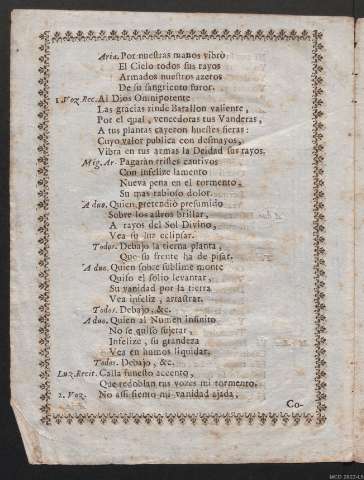 Aria. Por nuestras manos vibrò
El Cielo todos sus rayos
Armados nuestros azeros
De su sangriento furor.
1. Voz Rec. Al Dios Omnipotente
Las gracias rinde Batallon valiente,
Por el qual, vencedoras tus Vanderas,
A tus plantas cayeron huestes fieras:
Cuyo valor publica con desmayos,
Vibra en tus armas la Deidad sus rayos.
Mig. Ar. Pagaràn tristes cautivos
Con infelize lamento
Nueva pena en el tormento,
Su mas rabioso dolor.
A duo. Quien pretendiò presumido
Sobre los astros brillar,
A rayos del Sol Divino,
Vea su luz eclipsar.
Todos. Debajo la tierna planta,
Que su frente ha de pisar.
A duo. Quien sobre sublime monte
Quiso el solio levantar,
Su vanidad por la tierra
Vea infeliz, arrastrar.
Todos. Debajo, &c.
A duo. Quien al Numen infinito
No se quiso sujetar,
Infelize, su grandeza
Vea en humos liquidar.
Todos. Debajo, &c.
Luz. Recit. Calla funesto accento,
Que redoblan tus vozes mi tormento.
2. Voz. No assi siento mi vanidad ajada,
Co-
MCD 2022-L5